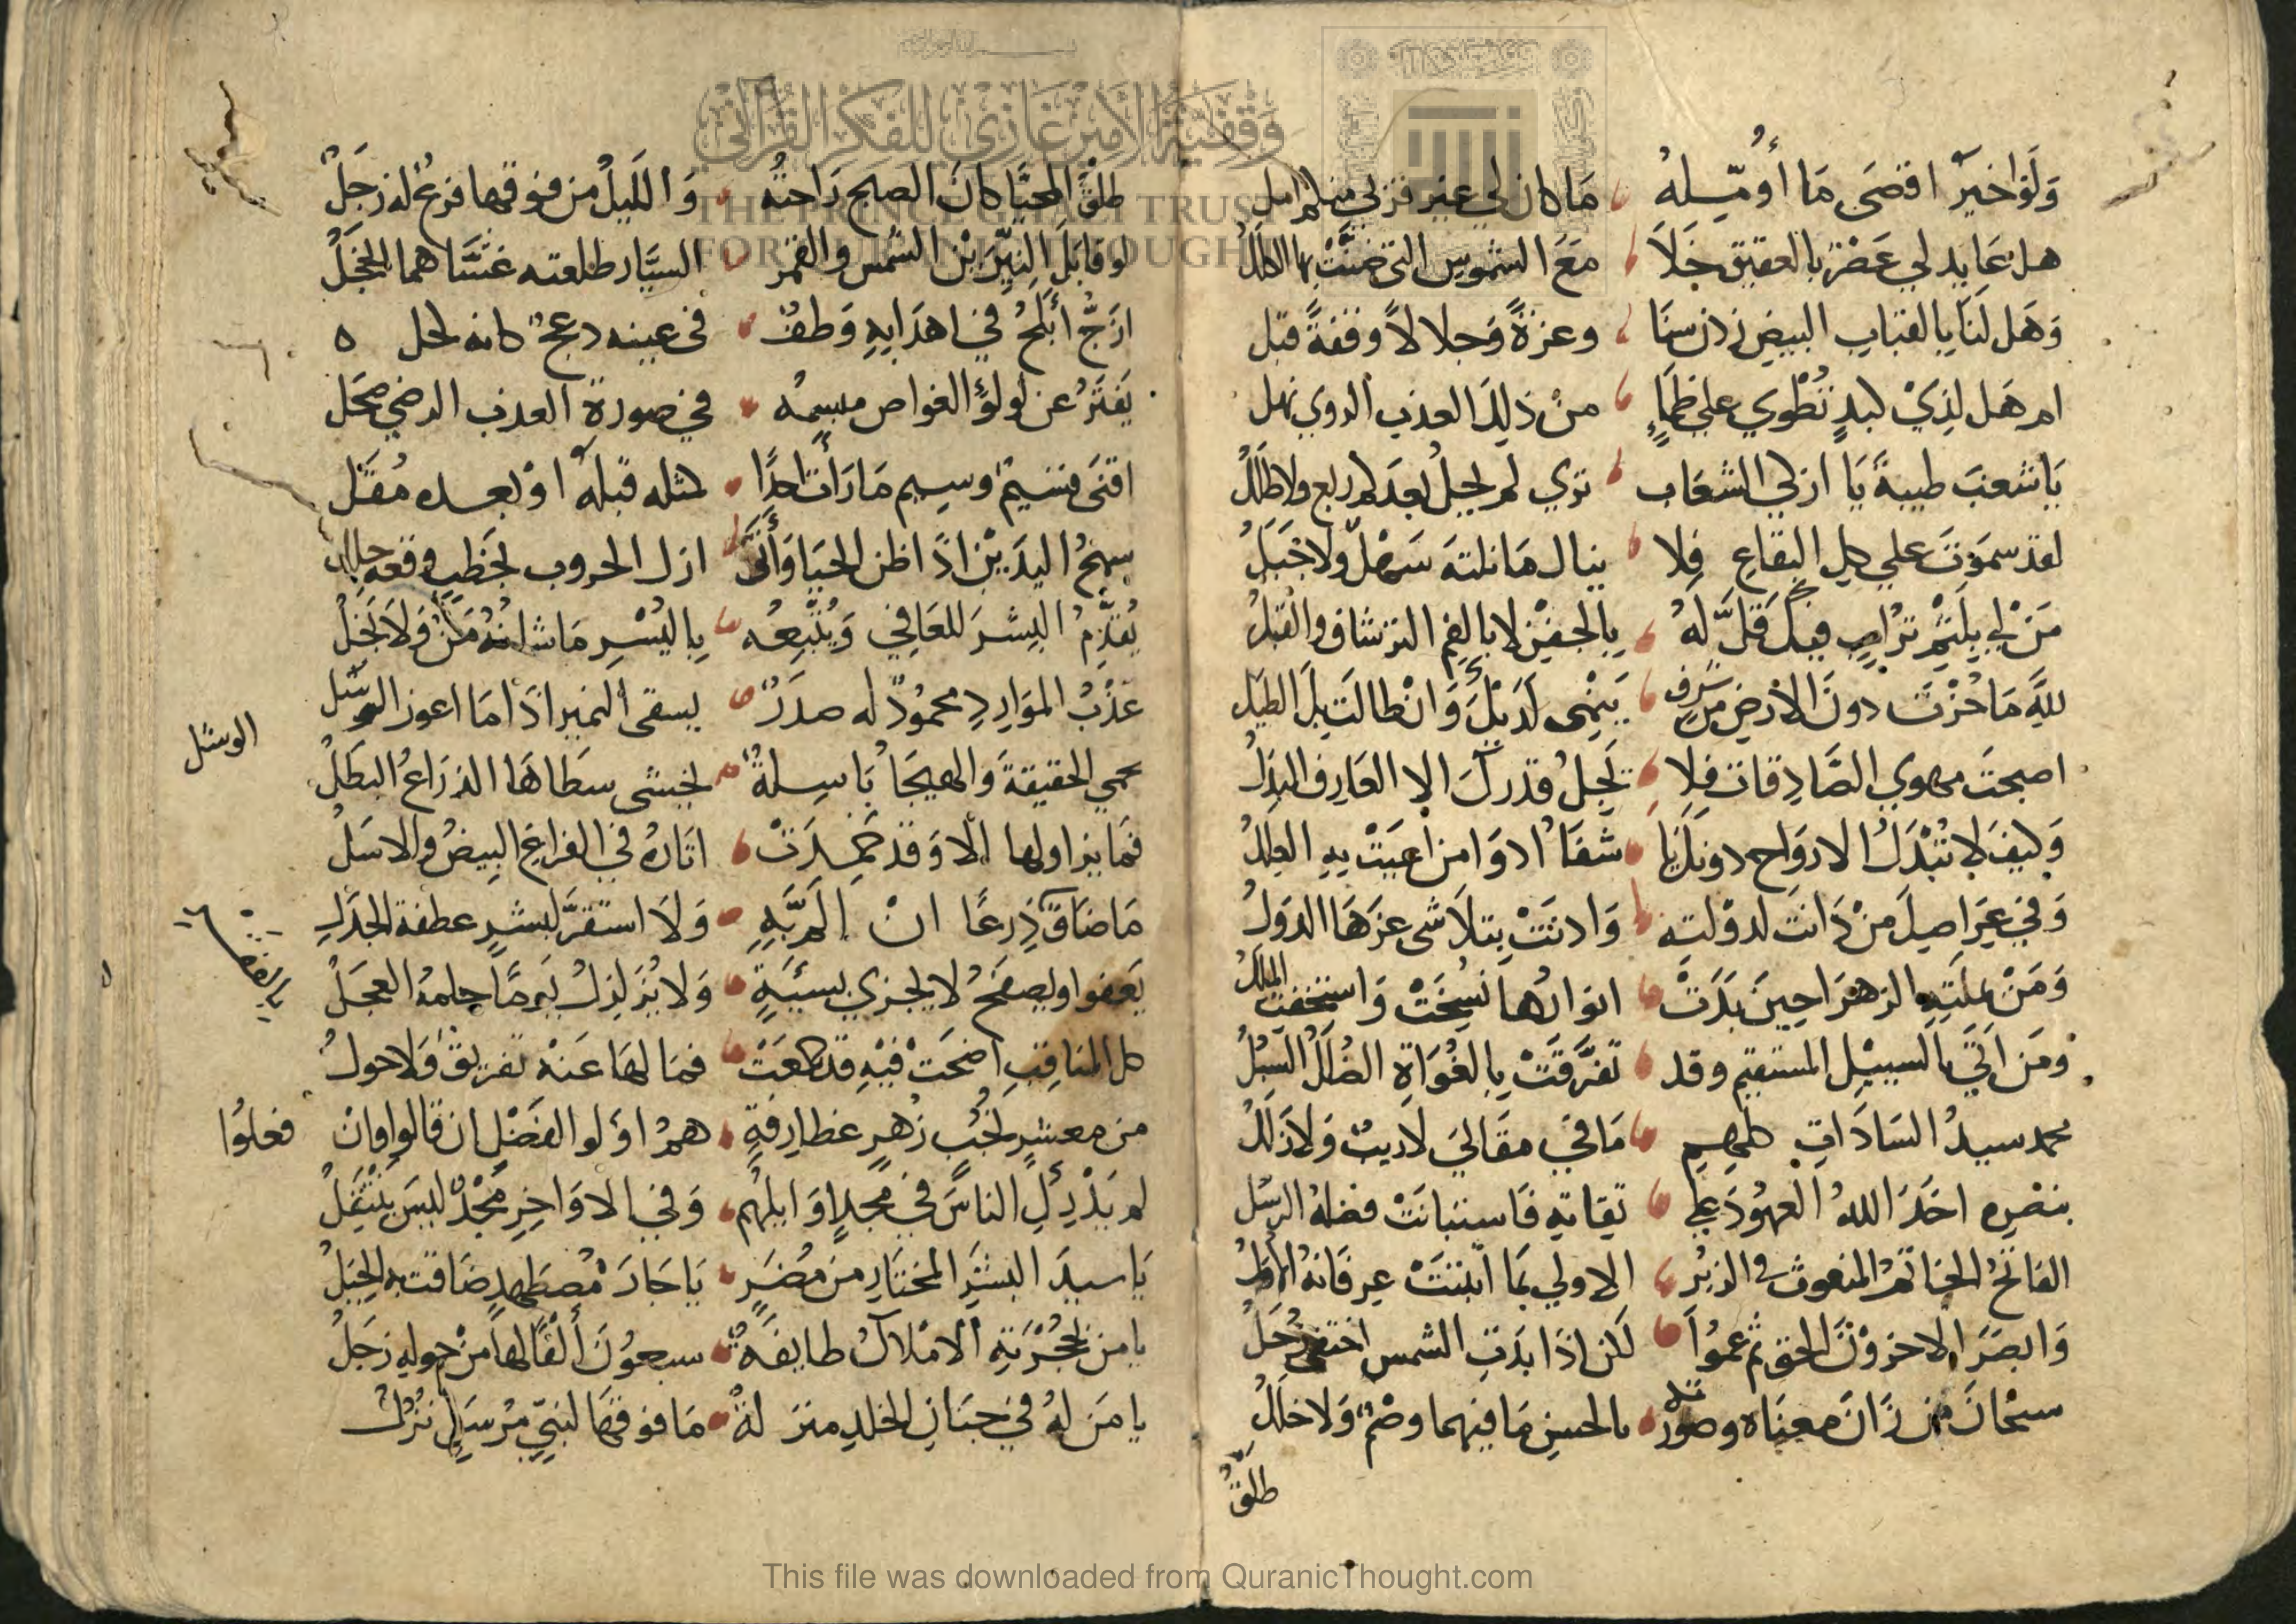 وَلَوْ اخيّر اقصَى مَا أُومّيلهُ ما كان لي عير قربي منكم امل
هل عَايد لي عَصْرٌ بالعقيق خَلاَ مَعَ الشموس التى ضمنَّتْ بها الكلل
وَهَل لَنَا بالقباب البيض زدن سنَا وعزةً وَجلالاً وقفةً قبل
ام هَل لِذِيْ كبدٍ تُطْوي علي ظمَاءٍ منْ ذلِكَ العذب الروي نهل
يَا شعبَ طيبةَ يَا ازكي الشعَاب تري لم يحلُ بعدكم ربع ولا طللُ
لقد سموْتَ علي كل البقاعِ فلا ينال مَا نلتهَ سَهْلٌ ولا جَبَلُ
مَنْ لي بِلَثْمِ تُرابٍ فيكَ قَلَّ لهُ بالجفنِ لا بالفم الترشاف والقبلُ
للهِ مَا حُزْتَ دونَ الارضِ من شرفٍ يَنْمى لَدَيْكَ وَانْ طالَت بِكَ الطيَل
اصبحتَ مهوي الصَّادِقات فلا يَجِلُ قدركَ الا العَارف البدلُ
وَكيفَ لا تُبْذَلُ الارَواح دونكَ يَا شفَاءُ ادوَا من اعيَتْ بهِ العللُ
وَفي عِرَاصِكَ منْ دَانت لدوْلته وَادنَتْ بتلاَشى عزهَا الدولُ
وَمَنْ بملتهِ الزهْرَا حينَ بدَتْ انوارُها نُسِخَتْ وَاستخفت المللُ
ومَن اَتَى بالسبيْل المستقيم وقد تَفَرَّقَتْ بِالغُوَاةِ الضُلَّلُ السُبُلُ
محمد سيدُ السَادَاتِ كلهم مَا في مقَالي لا ريبٌ وَلا زَللُ
بنصره اخَذَ اللهُ العهُودَ علي تقاته فَاستبانَتْ فضلهُ الرسُل
الفاتحُ الخاتمُ المنعوت في الزبُر الاولي بمَا اثبَتَتْ عرفَانهُ الاولُ
وَابصَرَ الاخروْنَ الحق ثم عموُا لكن اذَا بدَتِ الشمس اختفى زُحَلُ
سبْحَانَ من زَانَ معنَاه وصورته بالحسنِ مَا فيهما وصْمٌ وَلا خللُ
طلقُ
طلقُ المحيَّا كانَ الصبح رَاحتُه وَالليلُ من فوقها فرعٌ له زجَلُ
لو قابَلَ النِيِّرَيْنِ الشمس والقمر السيَّار طلعته غشَّاهما الخجَلُ
ازجُّ أبلجُ في اهدَابهِ وَطفٌ في عينه دعجٌ كانه كحل ه
يَفترُ عن لولؤِ الغواص مبسمُه في صورة العذب الرضي صحَل
اقنَى قسَيمٌ وسيم مَا رَأَت احدًا كمثله قبلهُ اوْ بعده مُقَل
سمحُ اليدَيْن اذَا ظن الحيَا وَأَتى ازل الحروب لخَطبٍ وقعه جلل
يُقدِّمُ البِشرَ للعَافي وَيُتبعُه بِاليُسْرِ مَا شانهُ مَنٌ وَلاَ بَخَلُ
عَذْبُ المَوَارِدِ محمُودٌ له صدَرٌ يسقى النمير اذَا مَا اعوز الوشل
الوشل
يحمي الحقيقةَ وَالهيجَاُ بَاسِلةٌ يخشى سطَاهَا الذرَاعُ البطَلُ
فمَا يزاولها الا وَقد خمِدَتْ اثَارهُ في الفراغ البيضُ والاسَلُ
مَا ضَاقَ ذِرعًا انْ المَ بهِ وَلاَ استقرَّ لبشرٍ عطفهُ الجذل
يَعفوا ويصفحُ لا يجزي بسيّئةٍ وَلا يُزلزلُ يَومًا حلمهُ العجَلُ
كل المناقب اضحَتْ فيْهِ قد جمعَتْ فمَا لهَا عَنهْ تفريقٌ وَلا حولُ
من معشرٍ نُجُبٍ زُهرٍ غطارفةٍ همُ اوَلوا الفَضْلِ ان قَالوا وانْ فعلوُا
لم يدْرِكِ الناسَ في مَجدٍ اوَايلهُم وَفي الاوَاخِرِ مَجْدٌ ليسَ يَنْتَقِلُ
يَا سيدَ البشَرِ المختَارِ من مُضَرٍ يَا جَارَ مُصطَهدٍ ضَاقت به الحِيَلُ
يا من لحُجْرَتهِ الامْلاكُ طايفةٌ سبعوُنَ أَلفًا لهَا منْ حوله زجَلُ
يا مَن لهُ في جنَان الخلدِ منزلةٌ مَا فوقهَا لنبيٍ مرْسَلٍ نزُلُ